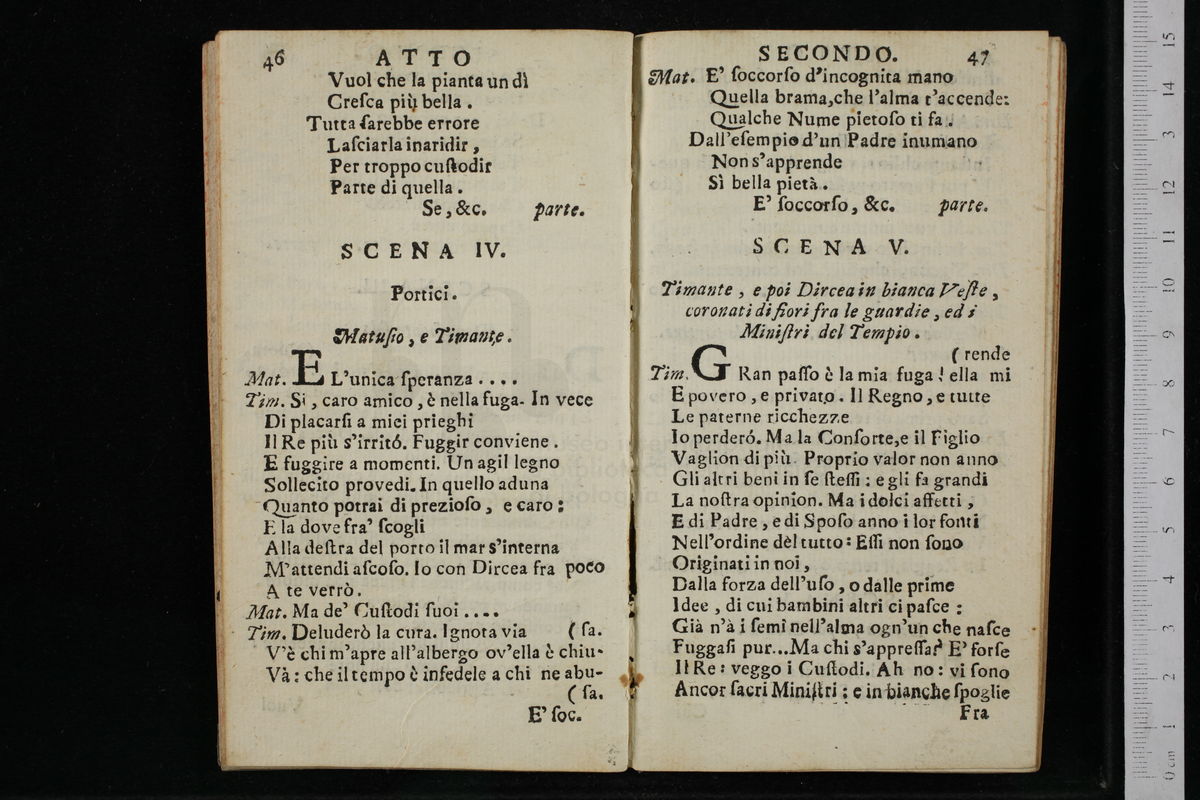 46 ATTO
Vuol che la pianta un dì
Creſca più bella .
Tutta ſarebbe errore
Laſciarla inaridir ,
Per troppo cuſtodir
Parte di quella .
Se , &c. parte.
SCENA IV.
Portici .
Matuſio , e Timante .
Mat. E L'unica ſperanza . . . .
Tim. Si , caro amico , è nella fuga. In vece
Di placarſi a miei prieghi
Il Re più s'irritó. Fuggir conviene .
E fuggire a momenti. Un agil legno
Sollecito provedi. In quello aduna
Quanto potrai di prezioſo , e caro ;
E la dove fra' ſcogli
Alla deſtra del porto il mar s'interna
M'attendi aſcoſo. Io con Dircea fra poco
A te verrò .
Mat. Ma de' Cuſtodi ſuoi . . . .
Tim. Deluderò la cura. Ignota via ( ſa.
V'è chi m'apre all'albergo ov'ella è chiu-
Và : che il tempo è infedele a chi ne abu-
( ſa.
E' ſoc.
SECONDO. 47
Mat. E' ſoccorſo d'incognita mano
Quella brama,che l'alma t'accende:
Qualche Nume pietoſo ti fa .
Dall'eſempio d'un Padre inumano
Non s'apprende
Sì bella pietà .
E' ſoccorſo , &c. parte.
SCENA V.
Timante , e poi Dircea in bianca Veſte ,
coronati di fiori fra le guardie , ed i
Miniſtri del Tempio .
( rende
Tim. GRan paſſo è la mia fuga ! ella mi
E povero , e privato . Il Regno , e tutte
Le paterne ricchezze
Io perderó. Ma la Conſorte,e il Figlio
Vaglion di più. Proprio valor non anno
Gli altri beni in ſe ſteſſi : e gli fa grandi
La noſtra opinion. Ma i dolci affetti ,
E di Padre , e di Spoſo anno i lor fonti
Nell'ordine dèl tutto : Eſſi non ſono
Originati in noi ,
Dalla forza dell'uſo , o dalle prime
Idee , di cui bambini altri ci paſce :
Già n'à i ſemi nell'alma ogn'un che naſce
Fuggaſi pur...Ma chi s'appreſſa? E' forſe
Il Re : veggo i Cuſtodi. Ah no : vi ſono
Ancor ſacri Miniſtri ; e in bianche ſpoglie
Fra
0 cm 1 2 3 4 5 6 7 8 9 10 11 12 13 14 15